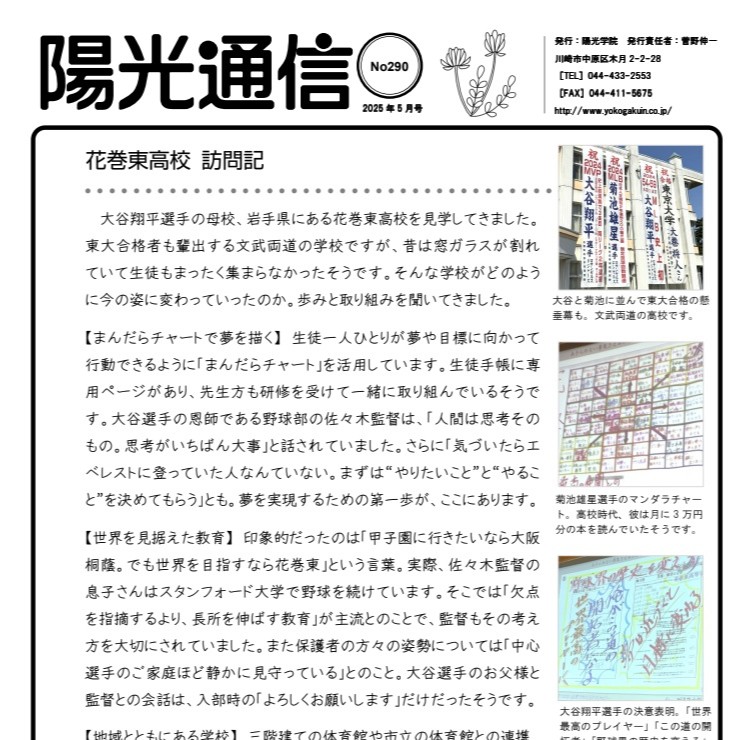 陽光通信
No290
2025年5月号
発行：陽光学院　発行責任者：菅野伸一
川崎市中原区木月2-2-28
［TEL］044-433-2553
［FAX］044-411-5675
http://www.yokogakuin.co.jp/
花巻東高校 訪問記
大谷翔平選手の母校、岩手県にある花巻東高校を見学してきました。
東大合格者も輩出する文武両道の学校ですが、昔は窓ガラスが割れ
ていて生徒もまったく集まらなかったそうです。そんな学校がどのよう
に今の姿に変わっていったのか。歩みと取り組みを聞いてきました。
【まんだらチャートで夢を描く】 生徒一人ひとりが夢や目標に向かって
行動できるように「まんだらチャート」を活用しています。生徒手帳に専
用ページがあり、先生方も研修を受けて一緒に取り組んでいるそうで
す。大谷選手の恩師である野球部の佐々木監督は、「人間は思考その
もの。思考がいちばん大事」と話されていました。さらに「気づいたらエ
ベレストに登っていた人なんていない。まずは“やりたいこと”と“やるこ
と”を決めてもらう」とも。夢を実現するための第一歩が、ここにあります。
【世界を見据えた教育】 印象的だったのは「甲子園に行きたいなら大阪
桐蔭。でも世界を目指すなら花巻東」という言葉。実際、佐々木監督の
息子さんはスタンフォード大学で野球を続けています。そこでは「欠点
を指摘するより、長所を伸ばす教育」が主流とのことで、監督もその考え
方を大切にされていました。また保護者の方々の姿勢については「中心
選手のご家庭ほど静かに見守っている」とのこと。大谷選手のお父様と
監督との会話は、入部時の「よろしくお願いします」だけだったそうです。
【地域とともにある学校】 三階建ての体育館や市立の体育館との連携、
祝
2024
MVP
大谷翔平
選手
祝
2024
MLB
菊池雄星
選手
祝
54-59
大谷翔平
選手
東京大学
大谷と菊池に並んで東大合格の懸
垂幕も。文武両道の高校です。
菊池雄星選手のマンダラチャー
ト。高校時代、彼は月に３万円
分の本を読んでいたそうです。
大谷翔平選手の決意表明。「世界
最高のプレイヤー」「この道の開
拓者」「野球界の歴史を変える」